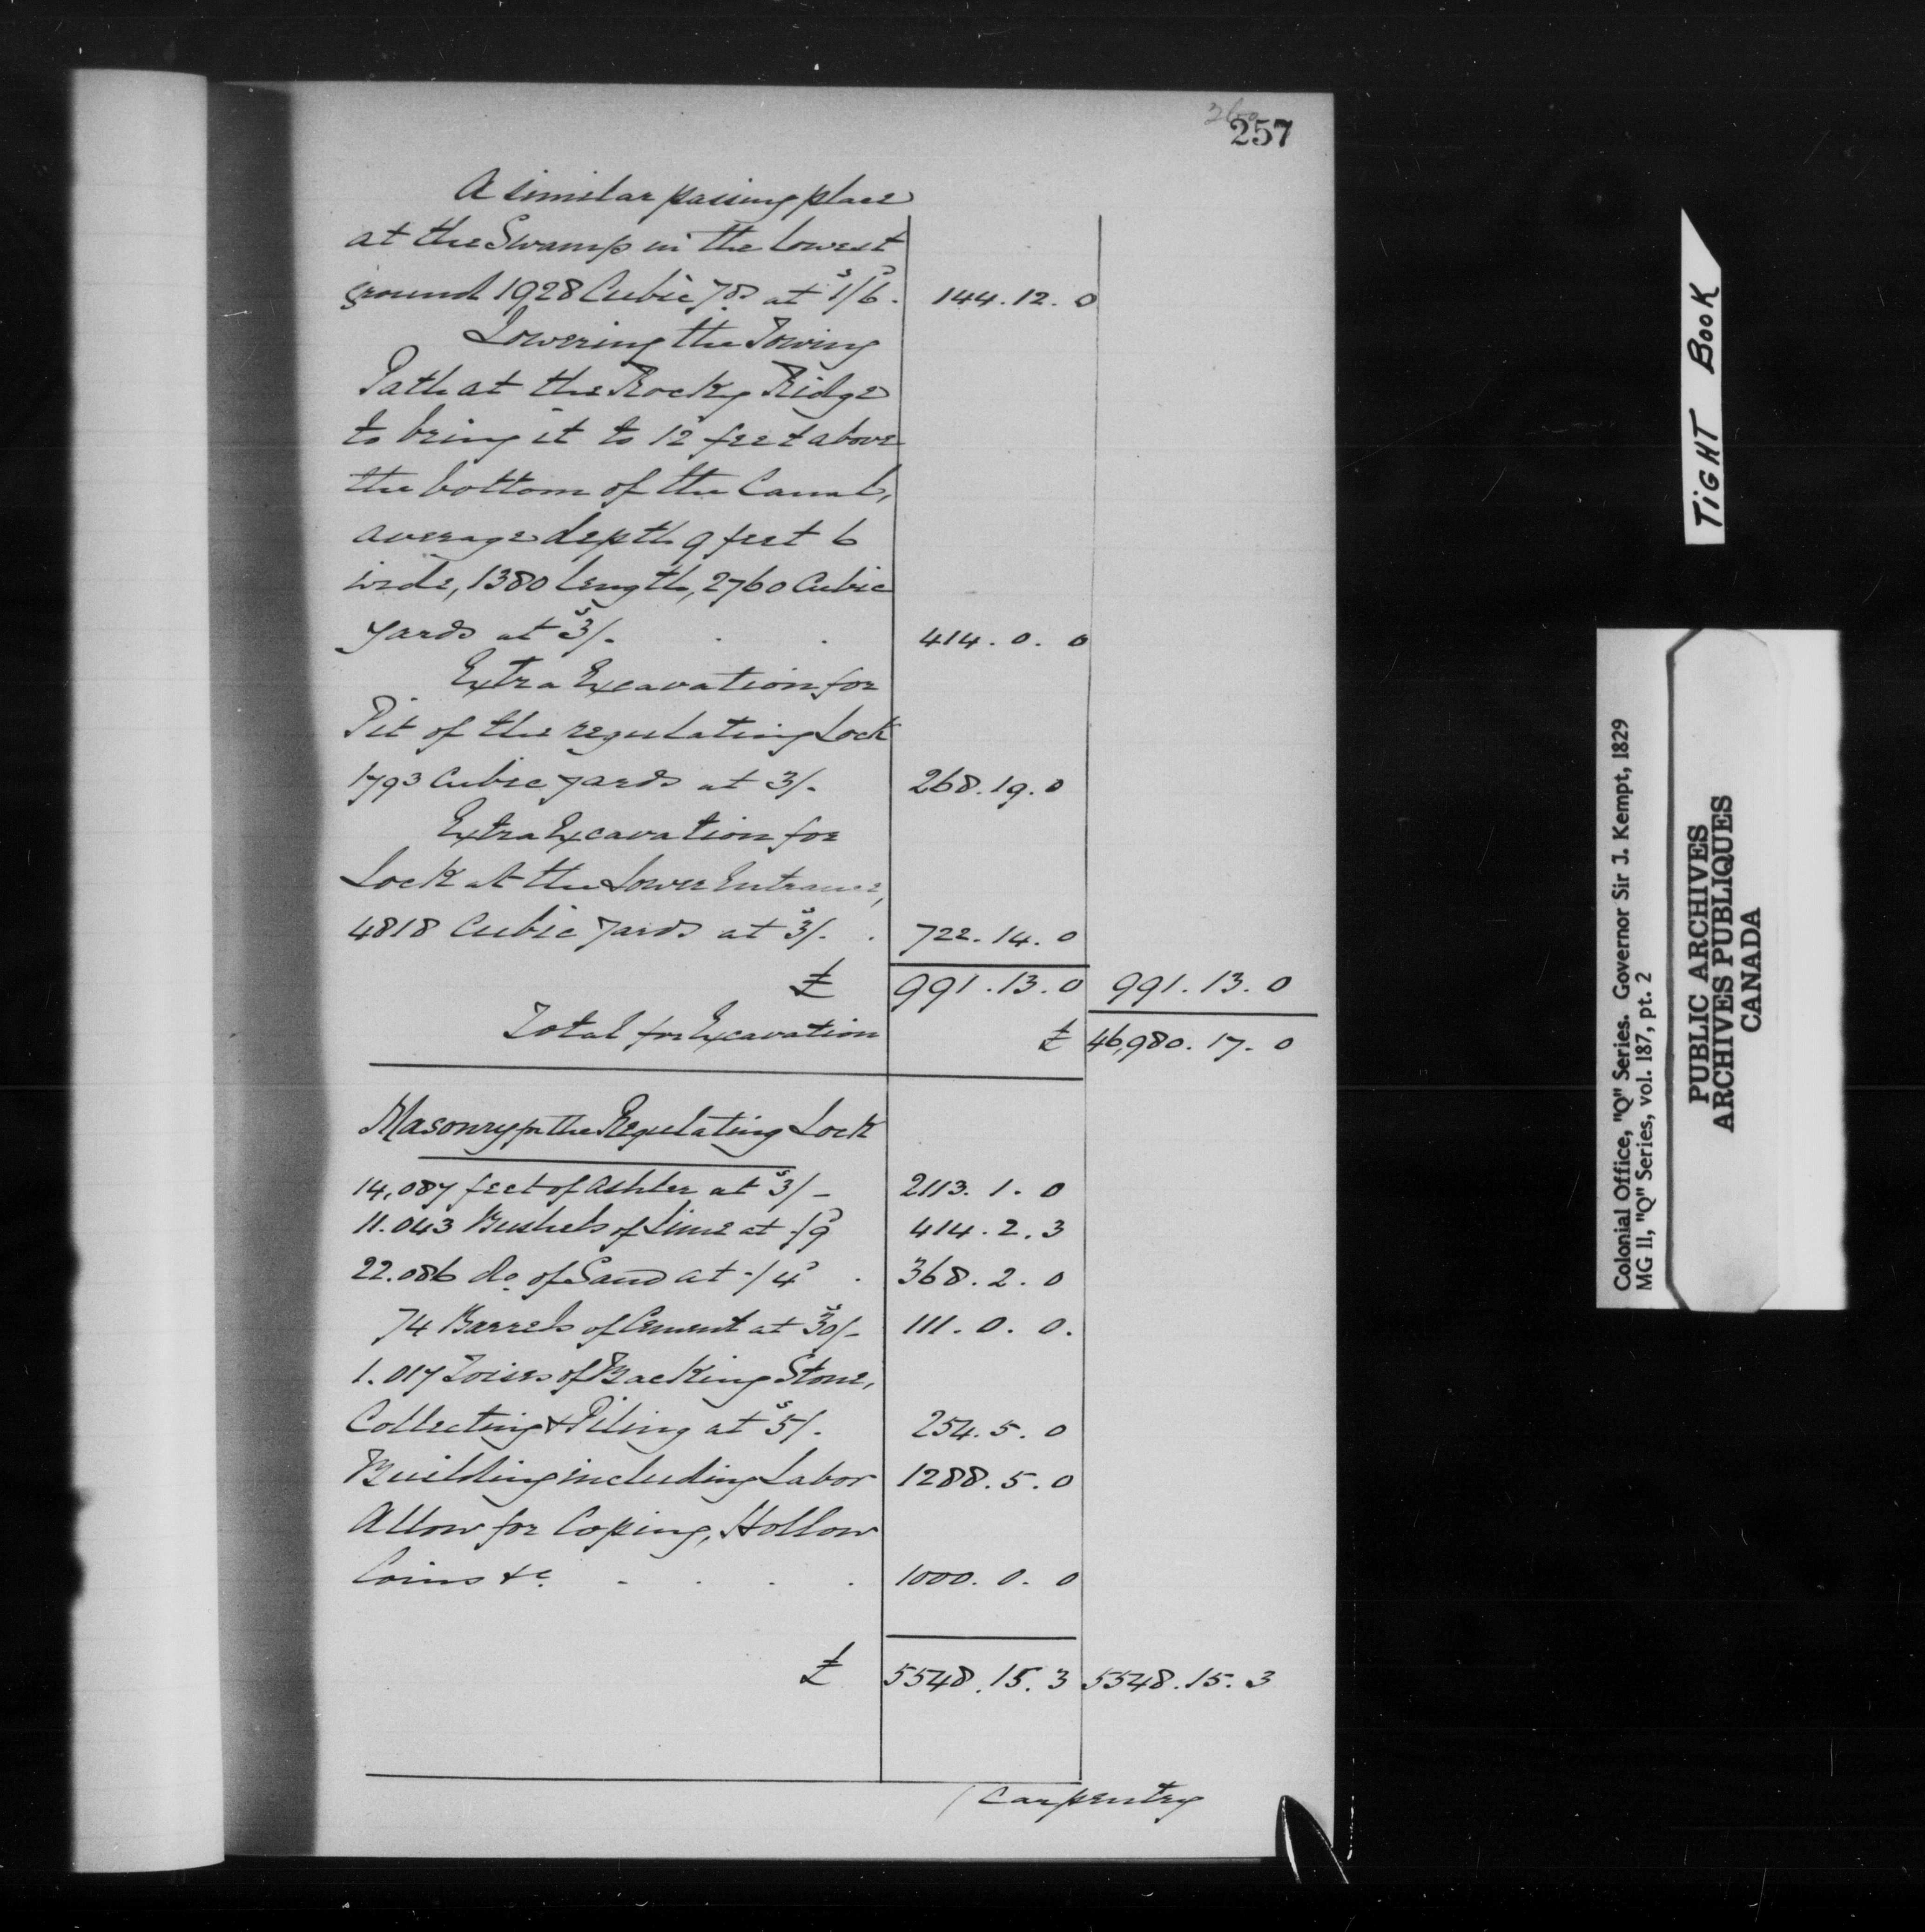 257
A similar passing place
at the Swamp in the lowest
ground 1928 Cubic Yds at 1/6. 144.12.0
Lowering the Towing
Path at the Rocky Ridge
to bring it to 12 feet above
the bottom of the Canal,
average depth 9 feet 6
wide, 1380 length, 2760 Cubic
yards at 3/. . . 414.0.0
Extra Excavation for
Pit of the regulating Lock
1793 Cubic yards at 3/. 268.19.0
Extra Excavation for
Lock at the Lower Entrance,
4818 Cubic yards at 3/. . 722.14.0
£ 991.13.0 991.13.0
Total for Excavation £ 46,980.17.0
Masonry for the Regulating Lock
14,087 feet of Ashler at 3/- 2113.1.0
11.043 Bushels of Lime at -/9 414.2.3
22.086 do. of Sand at -/4 . 368.2.0
74 Barrels of Cement at 30/- 111.0.0.
1.017 Toises of Backing Stone,
Collecting & Piling at 5/. 254.5.0
Building including Labor 1288.5.0
Allow for Coping, Hollow
Coins &c. . . . . 1000.0.0
£ 5548.15.3 5548.15.3
/Carpentry
TIGHT BOOK
Colonial Office, "Q" Series. Governor Sir J. Kempt, 1829
MG 11, "Q" Series, vol. 187, pt. 2
PUBLIC ARCHIVES
ARCHIVES PUBLIQUES
CANADA